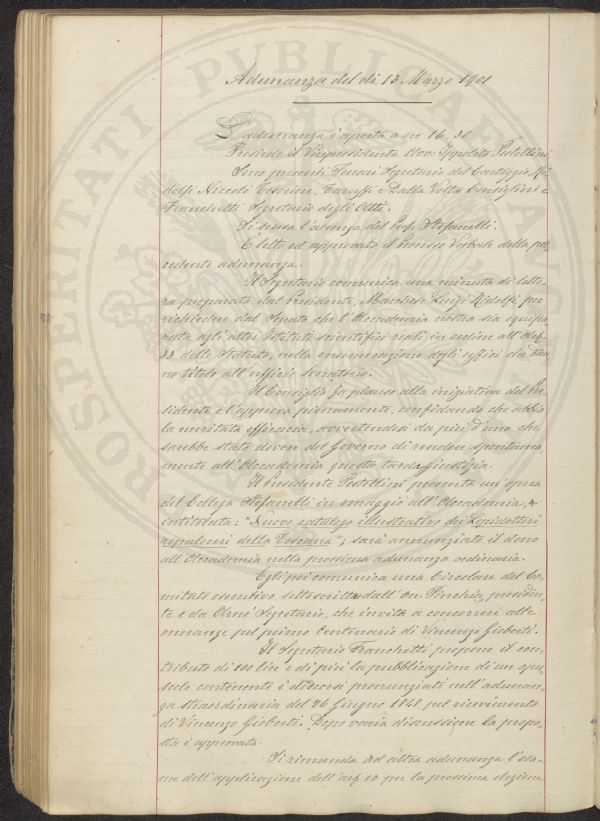 Adunanza del dì 13 Marzo 1901
L'adunanza è aperta a ore 16,30
Presiede il Vicepresidente Avv: Ippolito Pestellini
Sono presenti Ferrari Segretario del Carteggio, Ri-
dolfi Niccolò Cassiere, e Dalla Volta Consiglieri e
Franchetti Segretario degli Atti.
Si scusa l'assenza del Prof. Stefanelli.
È letto ed approvato il Processo Verbale della pre-
cedente adunanza.
Il Segretario comunica una minuta di lette-
ra preparata dal Presidente, Marchese Luigi Ridolfi, per
richiedere dal Senato che l'Accademia nostra sia equipa-
rata agli altri Istituti scientifici reali in ordine all'Art.
33 dello Statuto, nella enumerazione degli uffici che dan-
no titolo all'ufficio senatorio.
Il Consiglio fa plauso alla iniziativa del Pre-
sidente e l'approva pienamente, confidando che abbia
la meritata efficacia, avvertendosi da più d'uno che
sarebbe stato dovere del Governo di rendere spontanea-
mente all'Accademia questa tarda giustizia.
Il Presidente Pestellini presenta un'opera
del Collega Stefanelli in omaggio all'Accademia,
intitolata: "Nuovo catalogo illustrativo dei Lepidotteri
ropaloceri della Toscana"; sarà annunziato il dono
all'Accademia nella prossima adunanza ordinaria.
Egli poi comunica una Circolare del Co-
mitato esecutivo sottoscritta dall'On. Pinchia, presiden-
te e da Segretario, che invita a concorrere alle
onoranze pel primo Centenario di Vincenzo Gioberti.
Il Segretario Franchetti propone il con-
tributo di 100 lire e di più la pubblicazione di un opu-
scolo contenente i discorsi pronunziati nell'adunan-
za straordinaria del 26 Giugno 1848 pel ricevimento
di Vincenzo Gioberti. Dopo varia discussione la propo-
sta è approvata.
Si rimanda ad altra adunanza l'esa-
me dell'applicazione dell'art. 10 per la prossima elezione